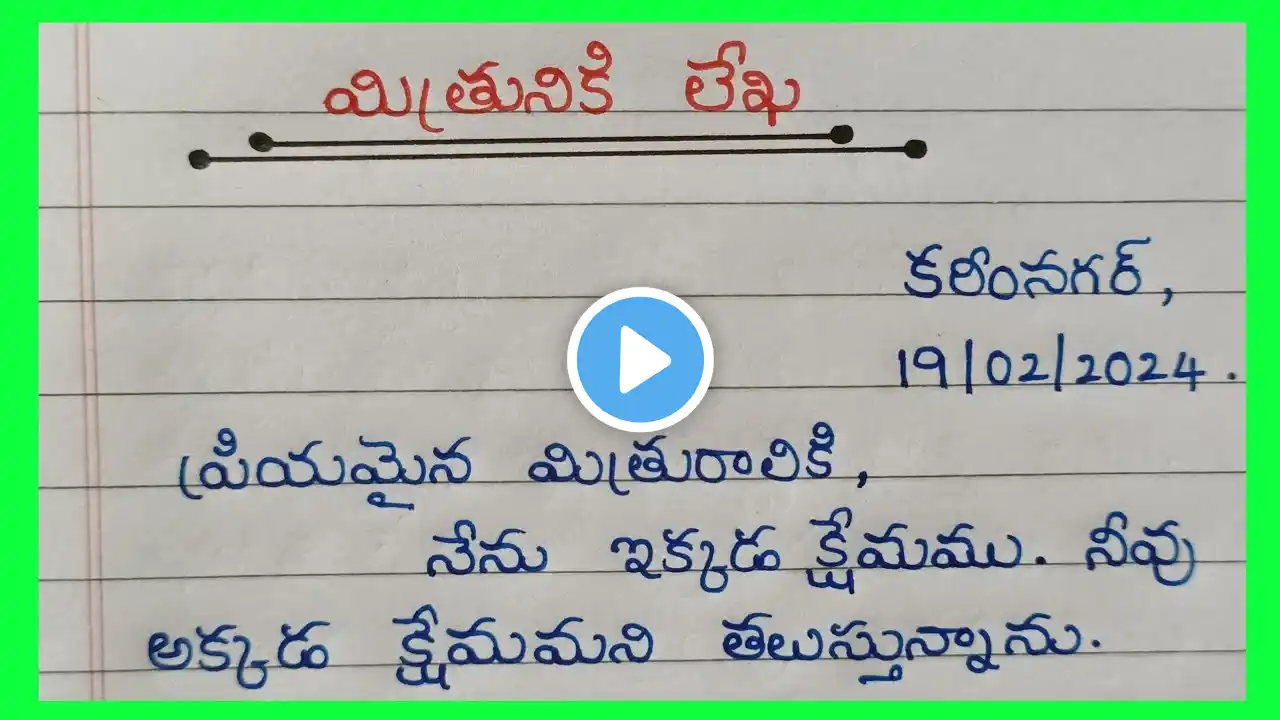 మిత్రునికి లేఖ
కరీంనగర్,
19/02/2024.
ప్రియమైన మిత్రురాలికి,
నేను ఇక్కడ క్షేమము. నీవు
అక్కడ క్షేమమని తలుస్తున్నాను.